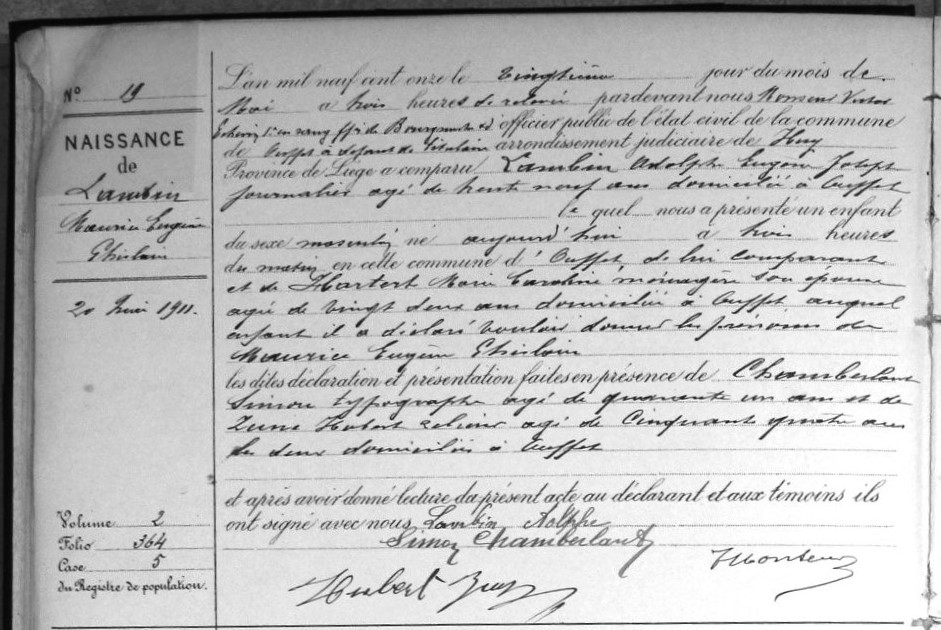 N° 19
NAISSANCE
de
Lambin
Maurice Eugène
Ghislain
20 Mai 1911.
Volume 2
Folio 364
Case 5
du Registre de population.
L'an mil neuf cent onze le vingtième jour du mois de
Mai à trois heures de relevée pardevant nous Monseur Victor
Echevin officier public de l'état civil de la commune
de Ouffet à défaut de titulaire arrondissement judiciaire de Huy
Province de Liége a comparu Lambin Adolphe Eugène Joseph
journalier agé de trente neuf ans domicilié à Ouffet
le quel nous a présenté un enfant
du sexe masculin né aujourd'hui à trois heures
du matin en cette commune d'Ouffet de lui comparant
et de Marie Caroline ménagère son épouse
agée de vingt deux ans domiciliée à Ouffet auquel
enfant il a déclaré vouloir donner les prénoms de
Maurice Eugène Ghislain
les dites déclaration et présentation faites en présence de Chamberlant
Simon typographe agé de quarante un ans et de
Hubert relieur agé de cinquante quatre ans
les deux domiciliés à Ouffet
et après avoir donné lecture du présent acte au déclarant et aux témoins ils
ont signé avec nous Lambin Adolphe
Simon Chamberlant
Hubert